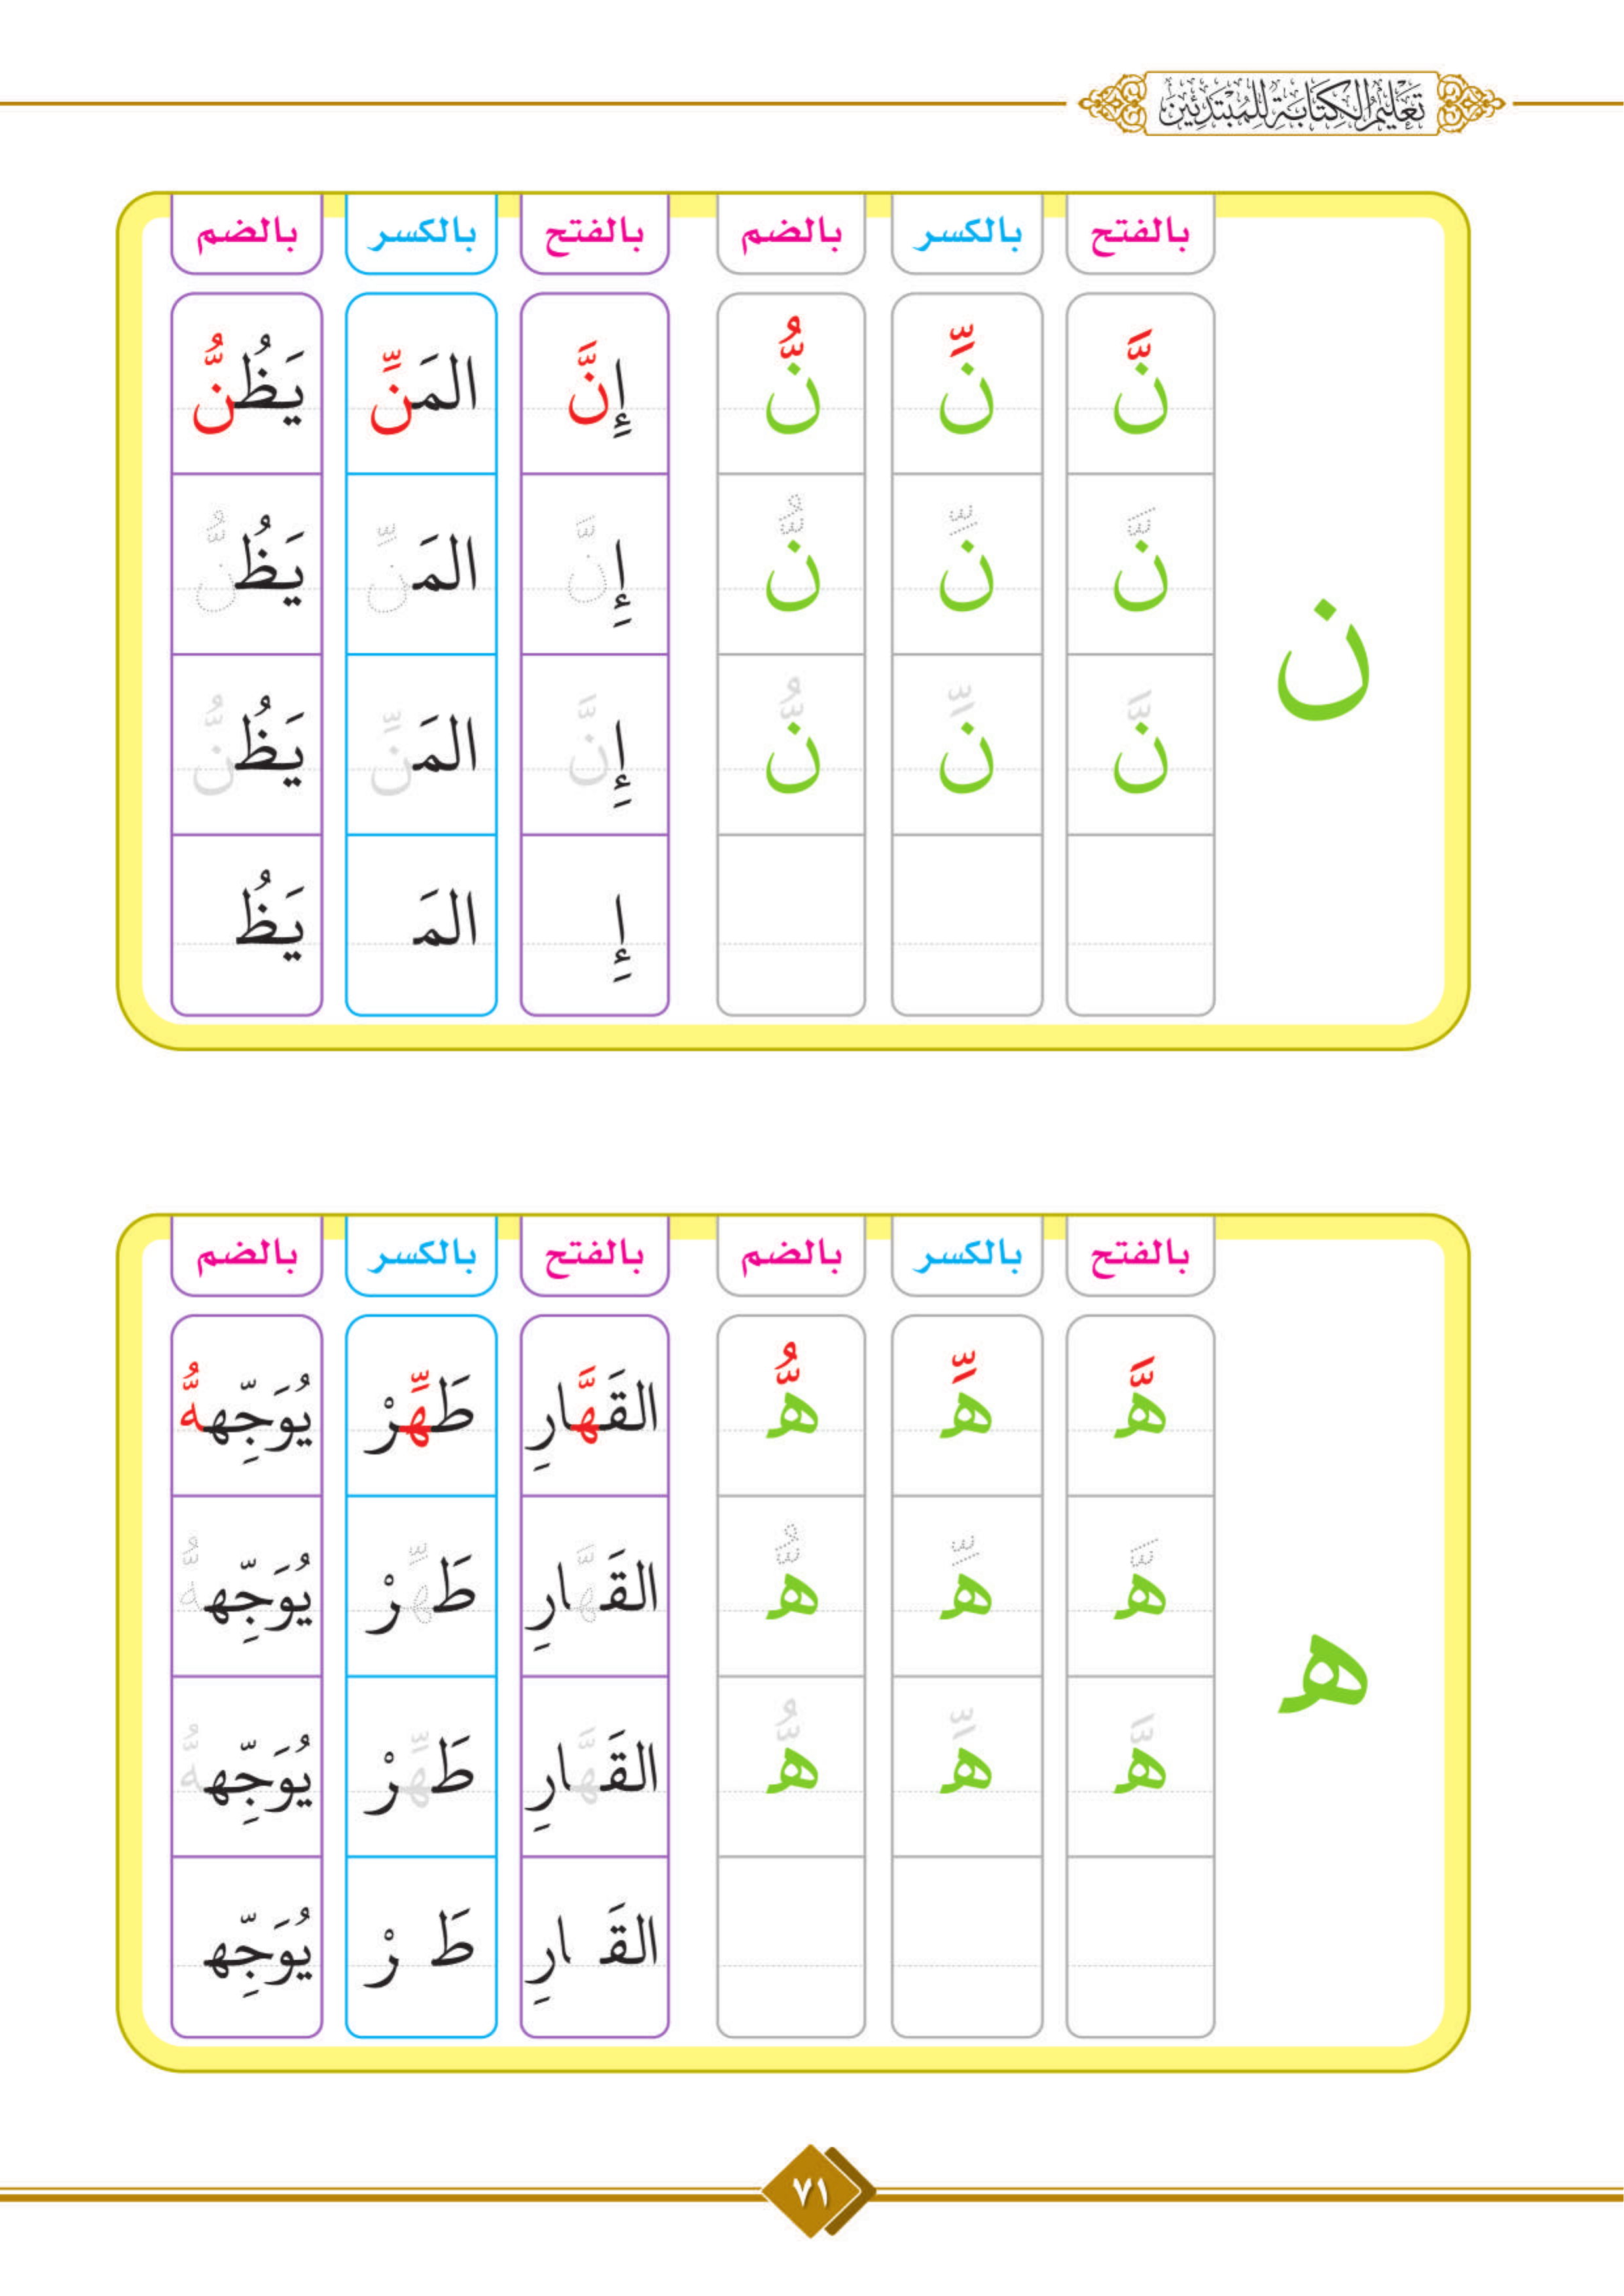 تَعْلِيْمُ الْكِتَابَةِ لِلْمُبْتَدِئِيْنَ
بالفتح بالكسر بالضم بالفتح بالكسر بالضم
نَّ نِّ نُّ إِنَّ المَنِّ يَظُنُّ
نَّ نِّ نُّ إِنَّ المَنِّ يَظُنُّ
ن
نَّ نِّ نُّ إِنَّ المَنِّ يَظُنُّ
إِ المَ يَظُ
بالفتح بالكسر بالضم بالفتح بالكسر بالضم
هَّ هِّ هُّ القَهَّارِ طَهِّرْ يُوَجِّههُّ
هَّ هِّ هُّ القَهَّارِ طَهِّرْ يُوَجِّههُّ
ه
هَّ هِّ هُّ القَهَّارِ طَهِّرْ يُوَجِّههُّ
القَ ارِ طَ رْ يُوَجِّهـ
٧١